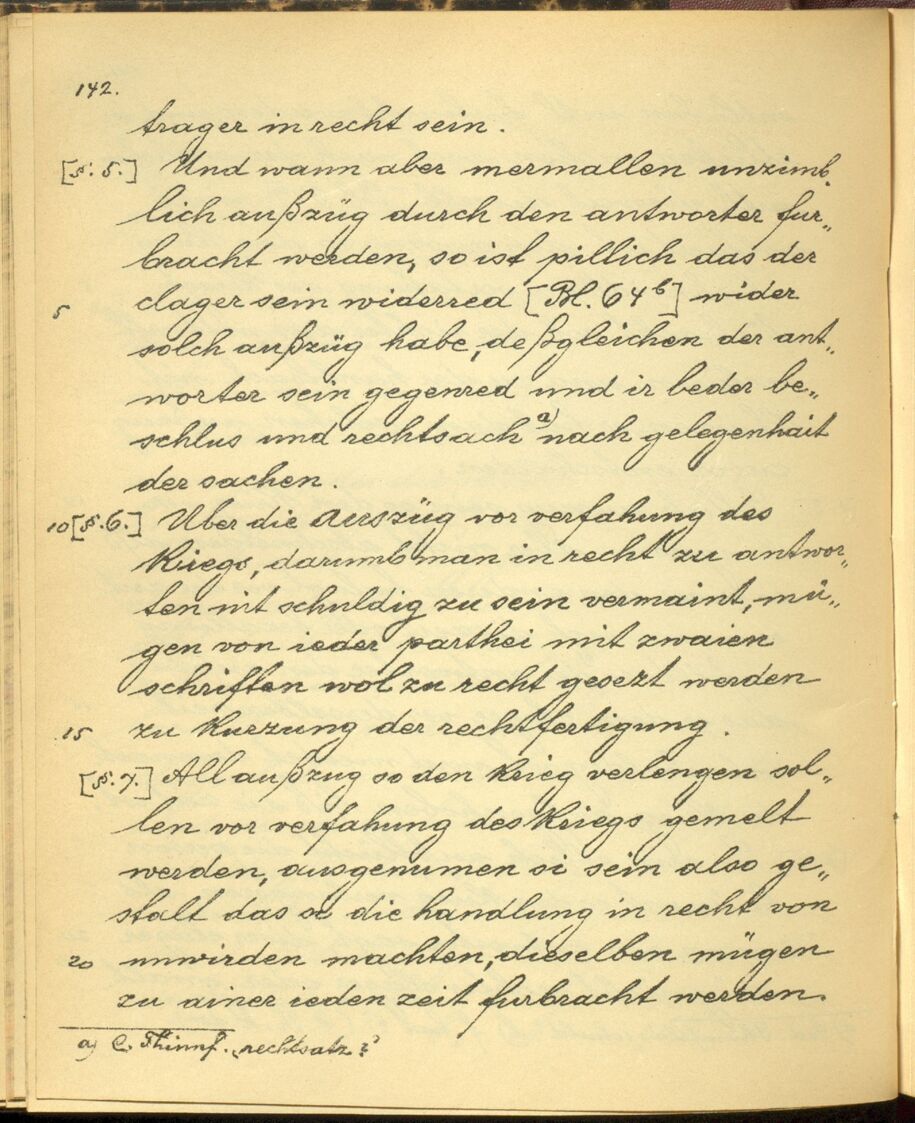 142.
trager in recht sein.
[§. 5.] Und wann aber mermallen unzimb„
lich außzüg durch den antworter fur„
bracht werden, so ist pillich das der
5 clager sein widerred [Bl. 64 b] wider
solch außzüg habe, deßgleichen der ant„
worter sein gegenred und ir beder be„
schlus und rechtsach a) nach gelegenhait
der sachen.
10 [§. 6.] Uber die auszüg vor verfahung des
kriegs, darumb man in recht zu antwor„
ten nit schuldig zu sein vermaint, mü„
gen von ieder parthei mit zwaien
schriften wol zu recht gesezt werden
15 zu kurzung der rechtfertigung.
[§. 7.] All außzug so den krieg verlengen sol„
len vor verfahung des kriegs gemelt
werden, ausgenumen si sein also ge„
stalt das si die handlung in recht von
20 unwirden machten, dieselben mügen
zu ainer ieden zeit furbracht werden.
a) C. „rechtsatz“?